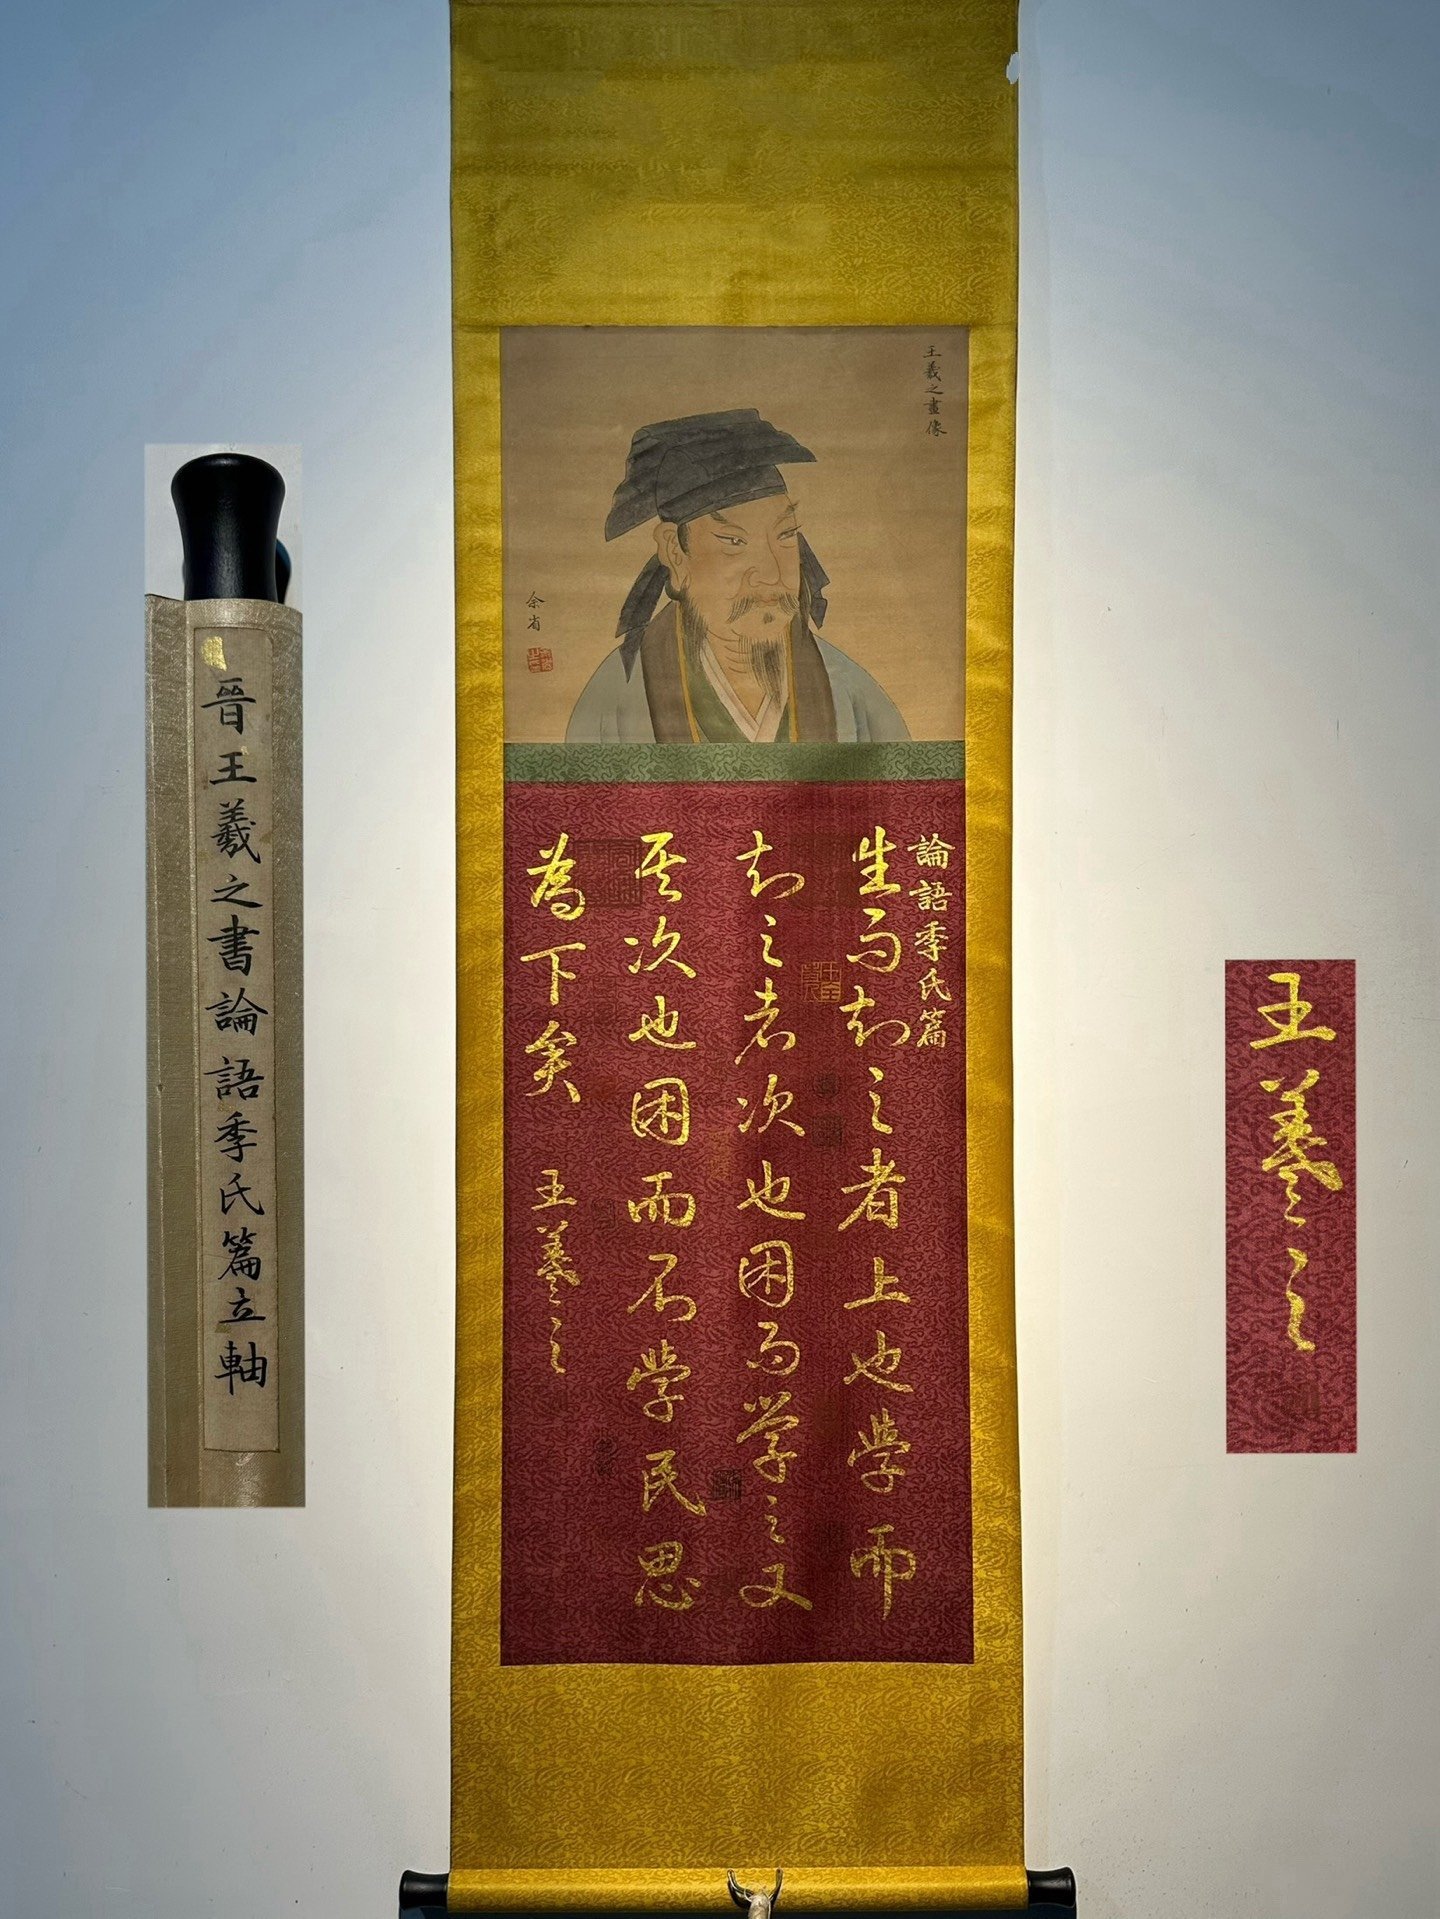 王羲之畫像
余省
論語季氏篇
生而知之者上也學而
知之者次也困而學之又
其次也困而不學民思
為下矣 王羲之
晉王羲之書論語季氏篇立軸
王羲之